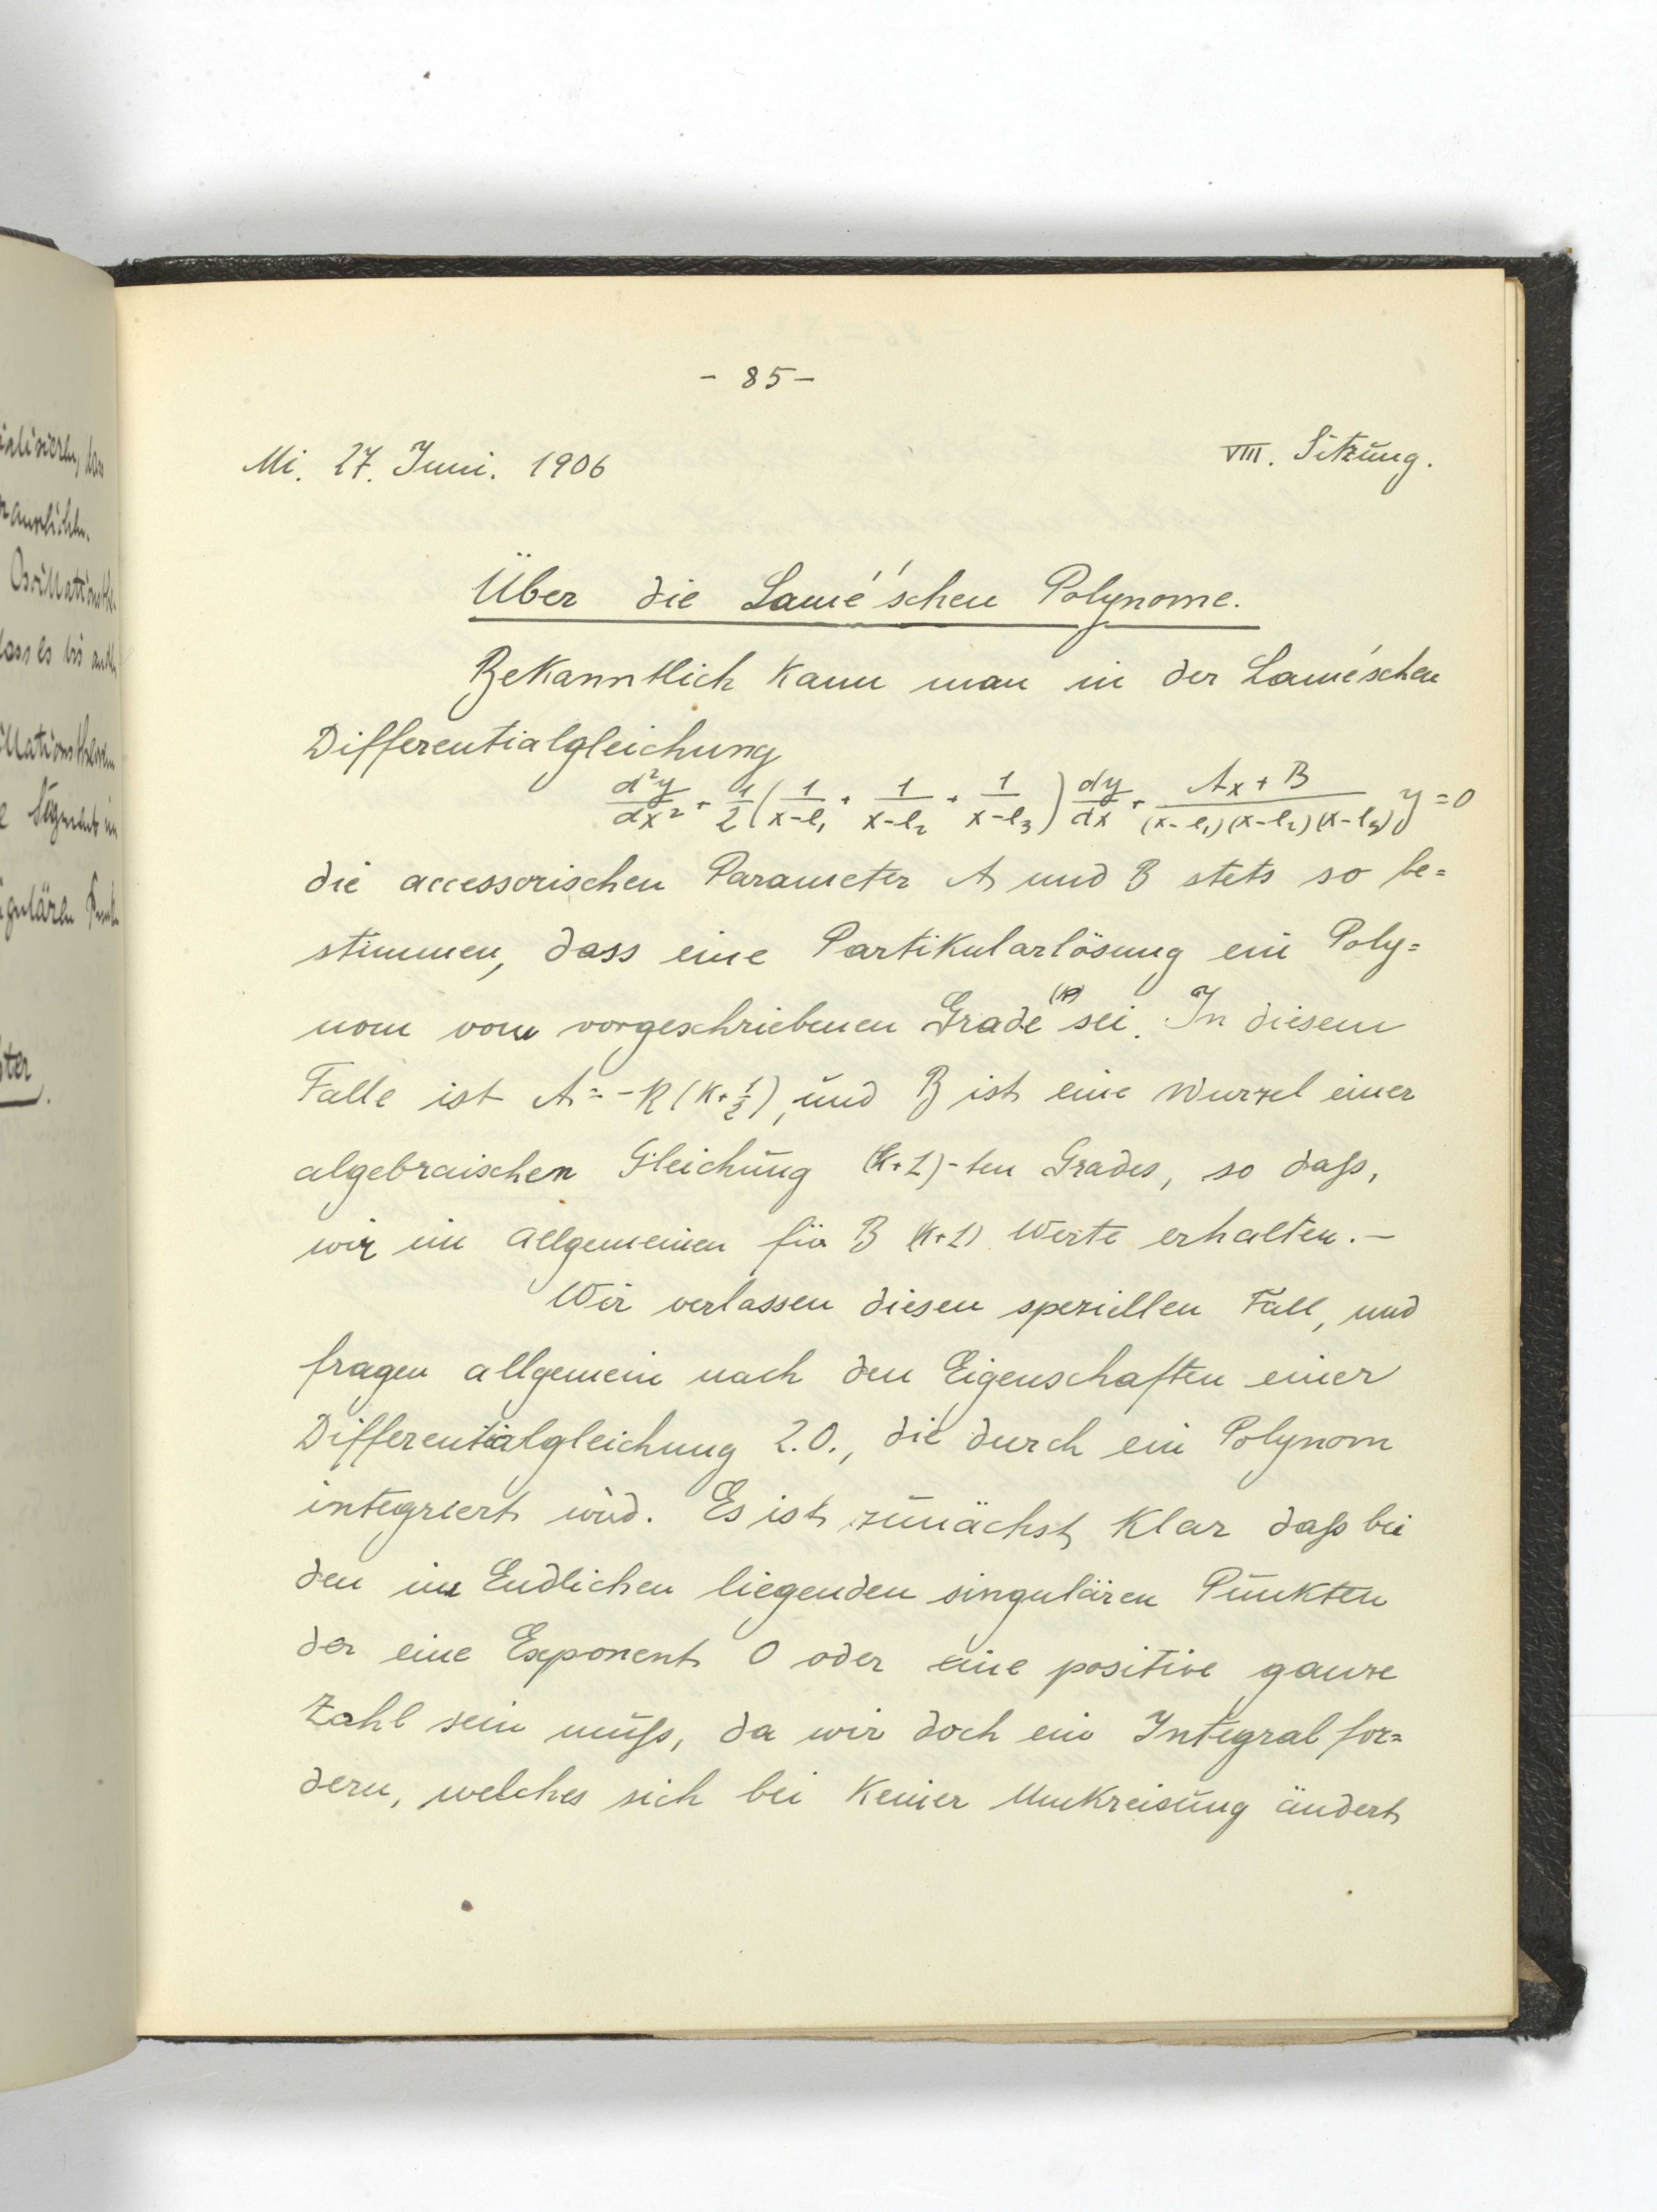 - 85 -
Mi. 27. Juni. 1906
VIII. Sitzung.
Über die Lamé'schen Polynome.
Bekanntlich kann man in der Lamé'schen
Differentialgleichung
d²y/dx² + 1/2 (1/(x-e₁) + 1/(x-e₂) + 1/(x-e₃)) dy/dx + (Ax + B)/((x-e₁)(x-e₂)(x-e₃)) y = 0
die accessorischen Parameter A und B stets so be=
stimmen, dass eine Partikularlösung ein Poly=
nom vom vorgeschriebenen Grade (k) sei. In diesem
Falle ist A = -k(k+½), und B ist eine Wurzel einer
algebraischen Gleichung (k+1)-ten Grades, so daß,
wir im allgemeinen für B (k+1) Werte erhalten. —
Wir verlassen diesen speziellen Fall, und
fragen allgemein nach den Eigenschaften einer
Differentialgleichung 2.O., die durch ein Polynom
integriert wird. Es ist zunächst klar daß bei
den im Endlichen liegenden singulären Punkten
der eine Exponent 0 oder eine positive ganze
Zahl sein muß, da wir doch ein Integral for=
dern, welches sich bei keiner Umkreisung ändert